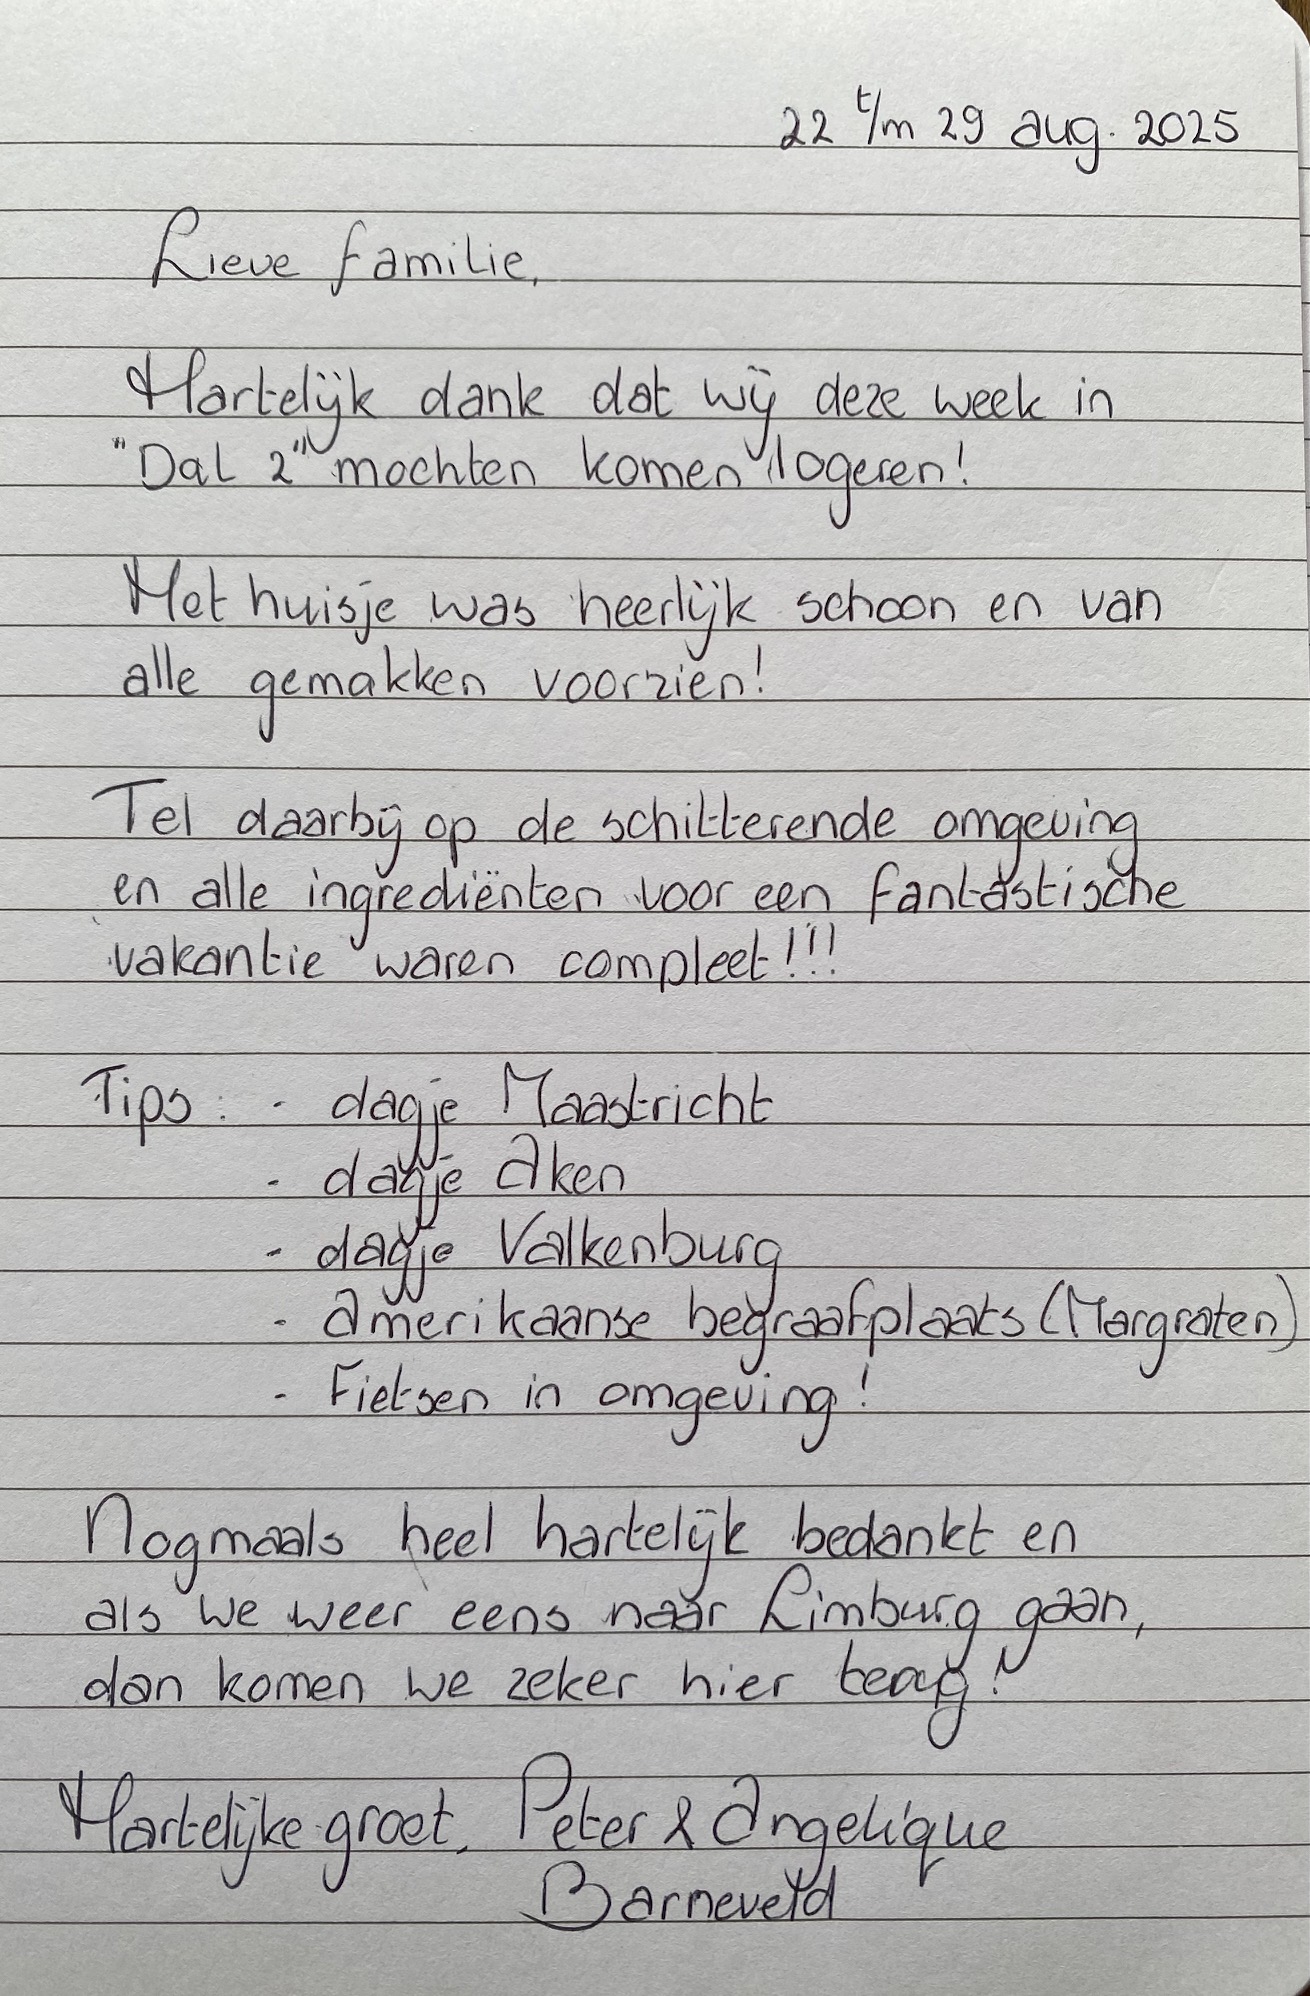 22 t/m 29 aug. 2025
Lieve familie,
Hartelijk dank dat wij deze week in
"Dal 2" mochten komen logeren!
Het huisje was heerlijk schoon en van
alle gemakken voorzien!
Tel daarbij op de schitterende omgeving
en alle ingrediënten voor een fantastische
vakantie waren compleet!!!
Tips: - dagje Maastricht
- dagje Aken
- dagje Valkenburg
- Amerikaanse begraafplaats (Margraten)
- Fietsen in omgeving!
Nogmaals heel hartelijk bedankt en
als we weer eens naar Limburg gaan,
dan komen we zeker hier terug!
Hartelijke groet, Peter & Angelique
Barneveld